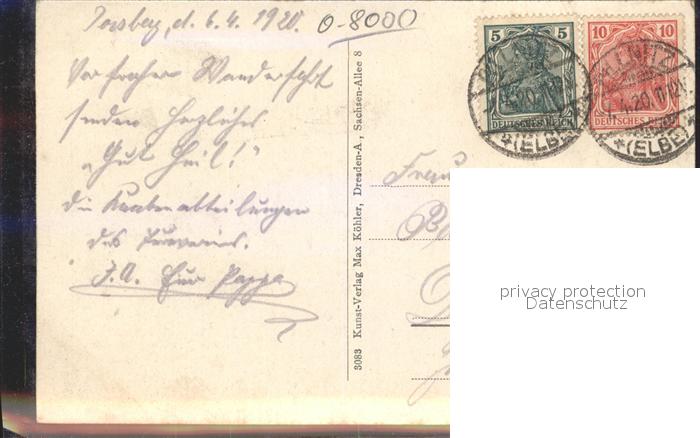 d. 6.4.1920. 0-8000
Von froher Wanderfahrt
senden herzliches
„Gut Heil!"
die Knabenabteilungen
des Turnvereins.
I. A. Euer Pappa
3083 Kunst-Verlag Max Köhler, Dresden-A., Sachsen-Allee 8
5 5
DEUTSCHES REICH
10 10
DEUTSCHES REICH
4.20.
(ELBE)
(ELBE)
Frau
privacy protection
Datenschutz